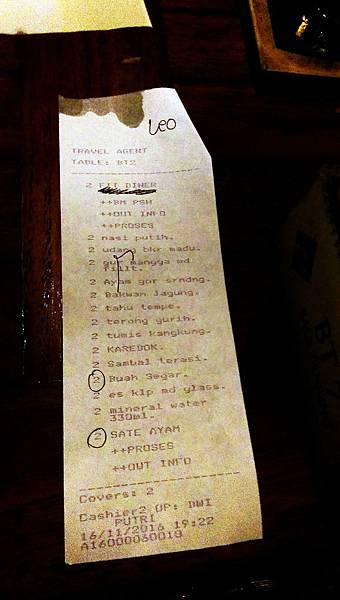 Leo
TRAVEL AGENT
TABLE: BT2
2 FIT DINER
++BM PSH
++OUT INFO
++PROSES
2 nasi putih.
2 udang bkr madu.
2 gur mangga md
fillt.
2 Ayam gor srndng.
2 Bakwan Jagung.
2 tahu tempe.
2 terong gurih.
2 tumis kangkung.
2 KAREDOK.
2 Sambal terasi.
2 Buah Segar.
2 es klp md glass.
2 mineral water
330ml.
2 SATE AYAM
++PROSES
++OUT INFO
Covers: 2
Cashier2 OP: DWI
PUTRI
16/11/2016 19:22
A16000060018